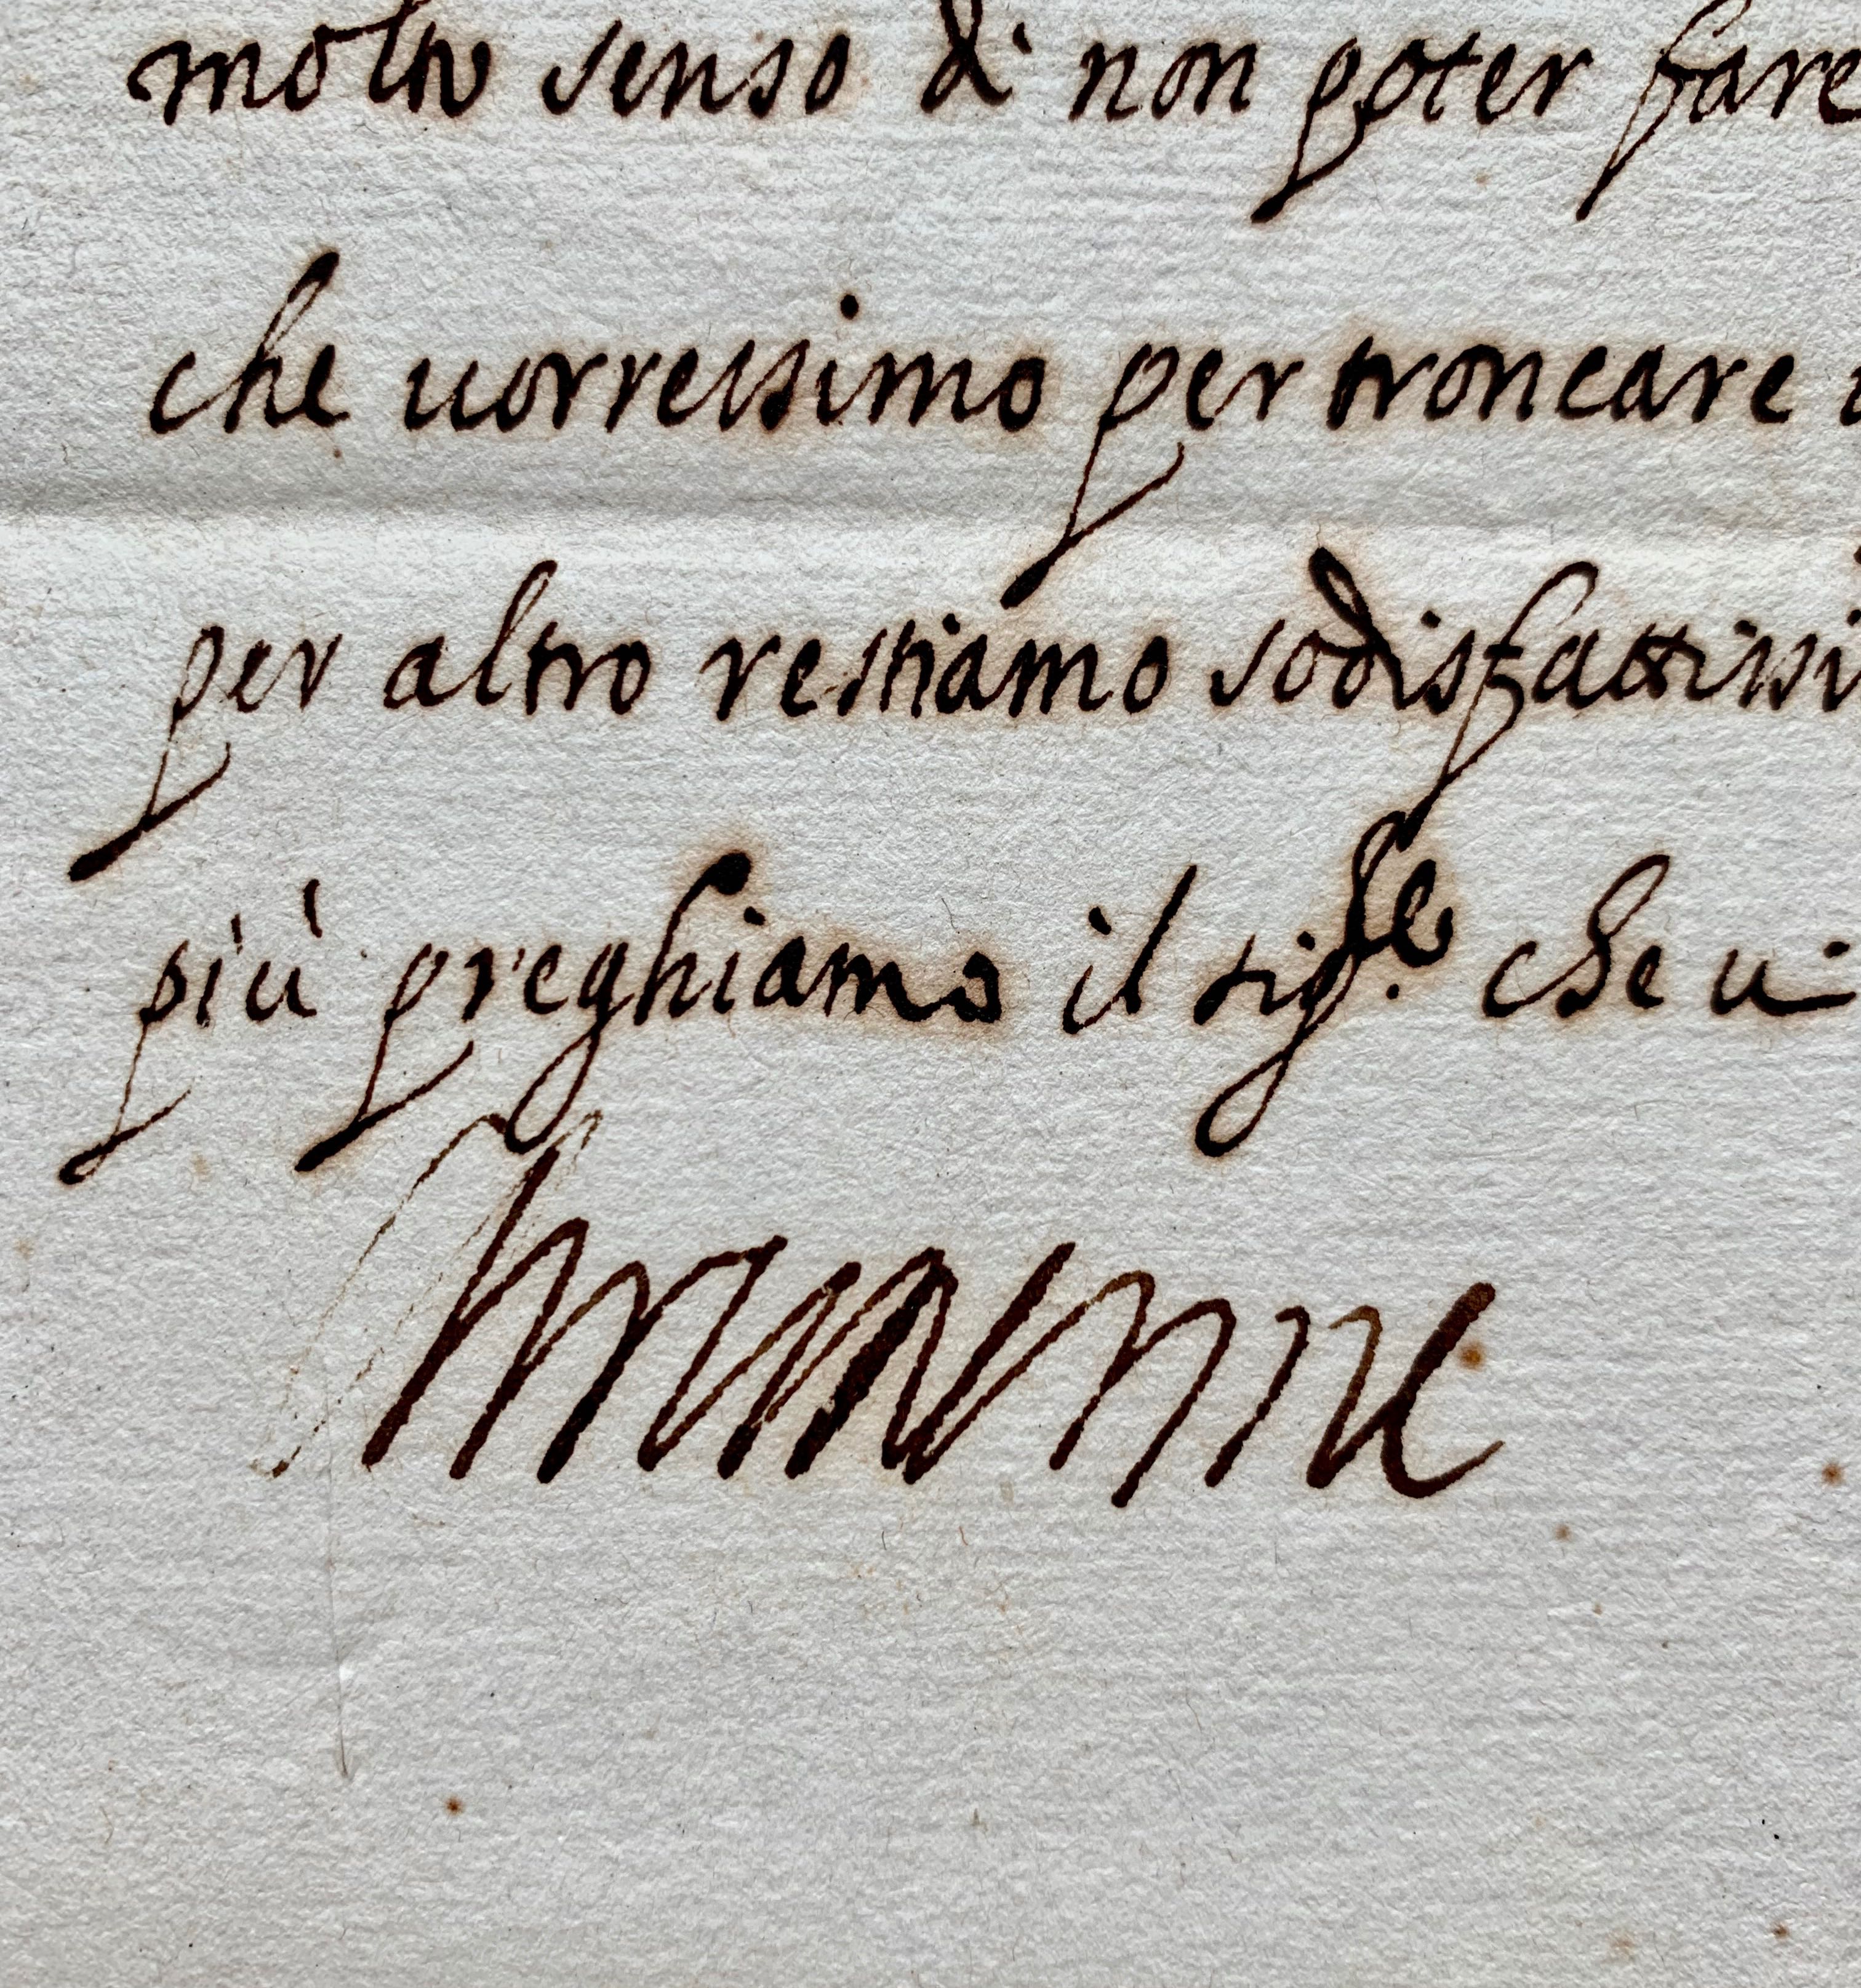 molto senso di non poter fare
che uorressimo per troncare
per altro restiamo sodisfattissi
più preghiamo il sig.re che u